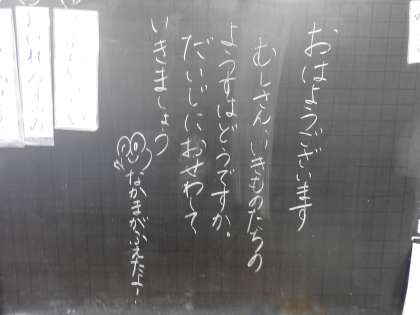 おはようございます
むしさん、いきものたちの
ようすはどうですか。
だいじにおせわして
いきましょう
なかまがふえたよ!